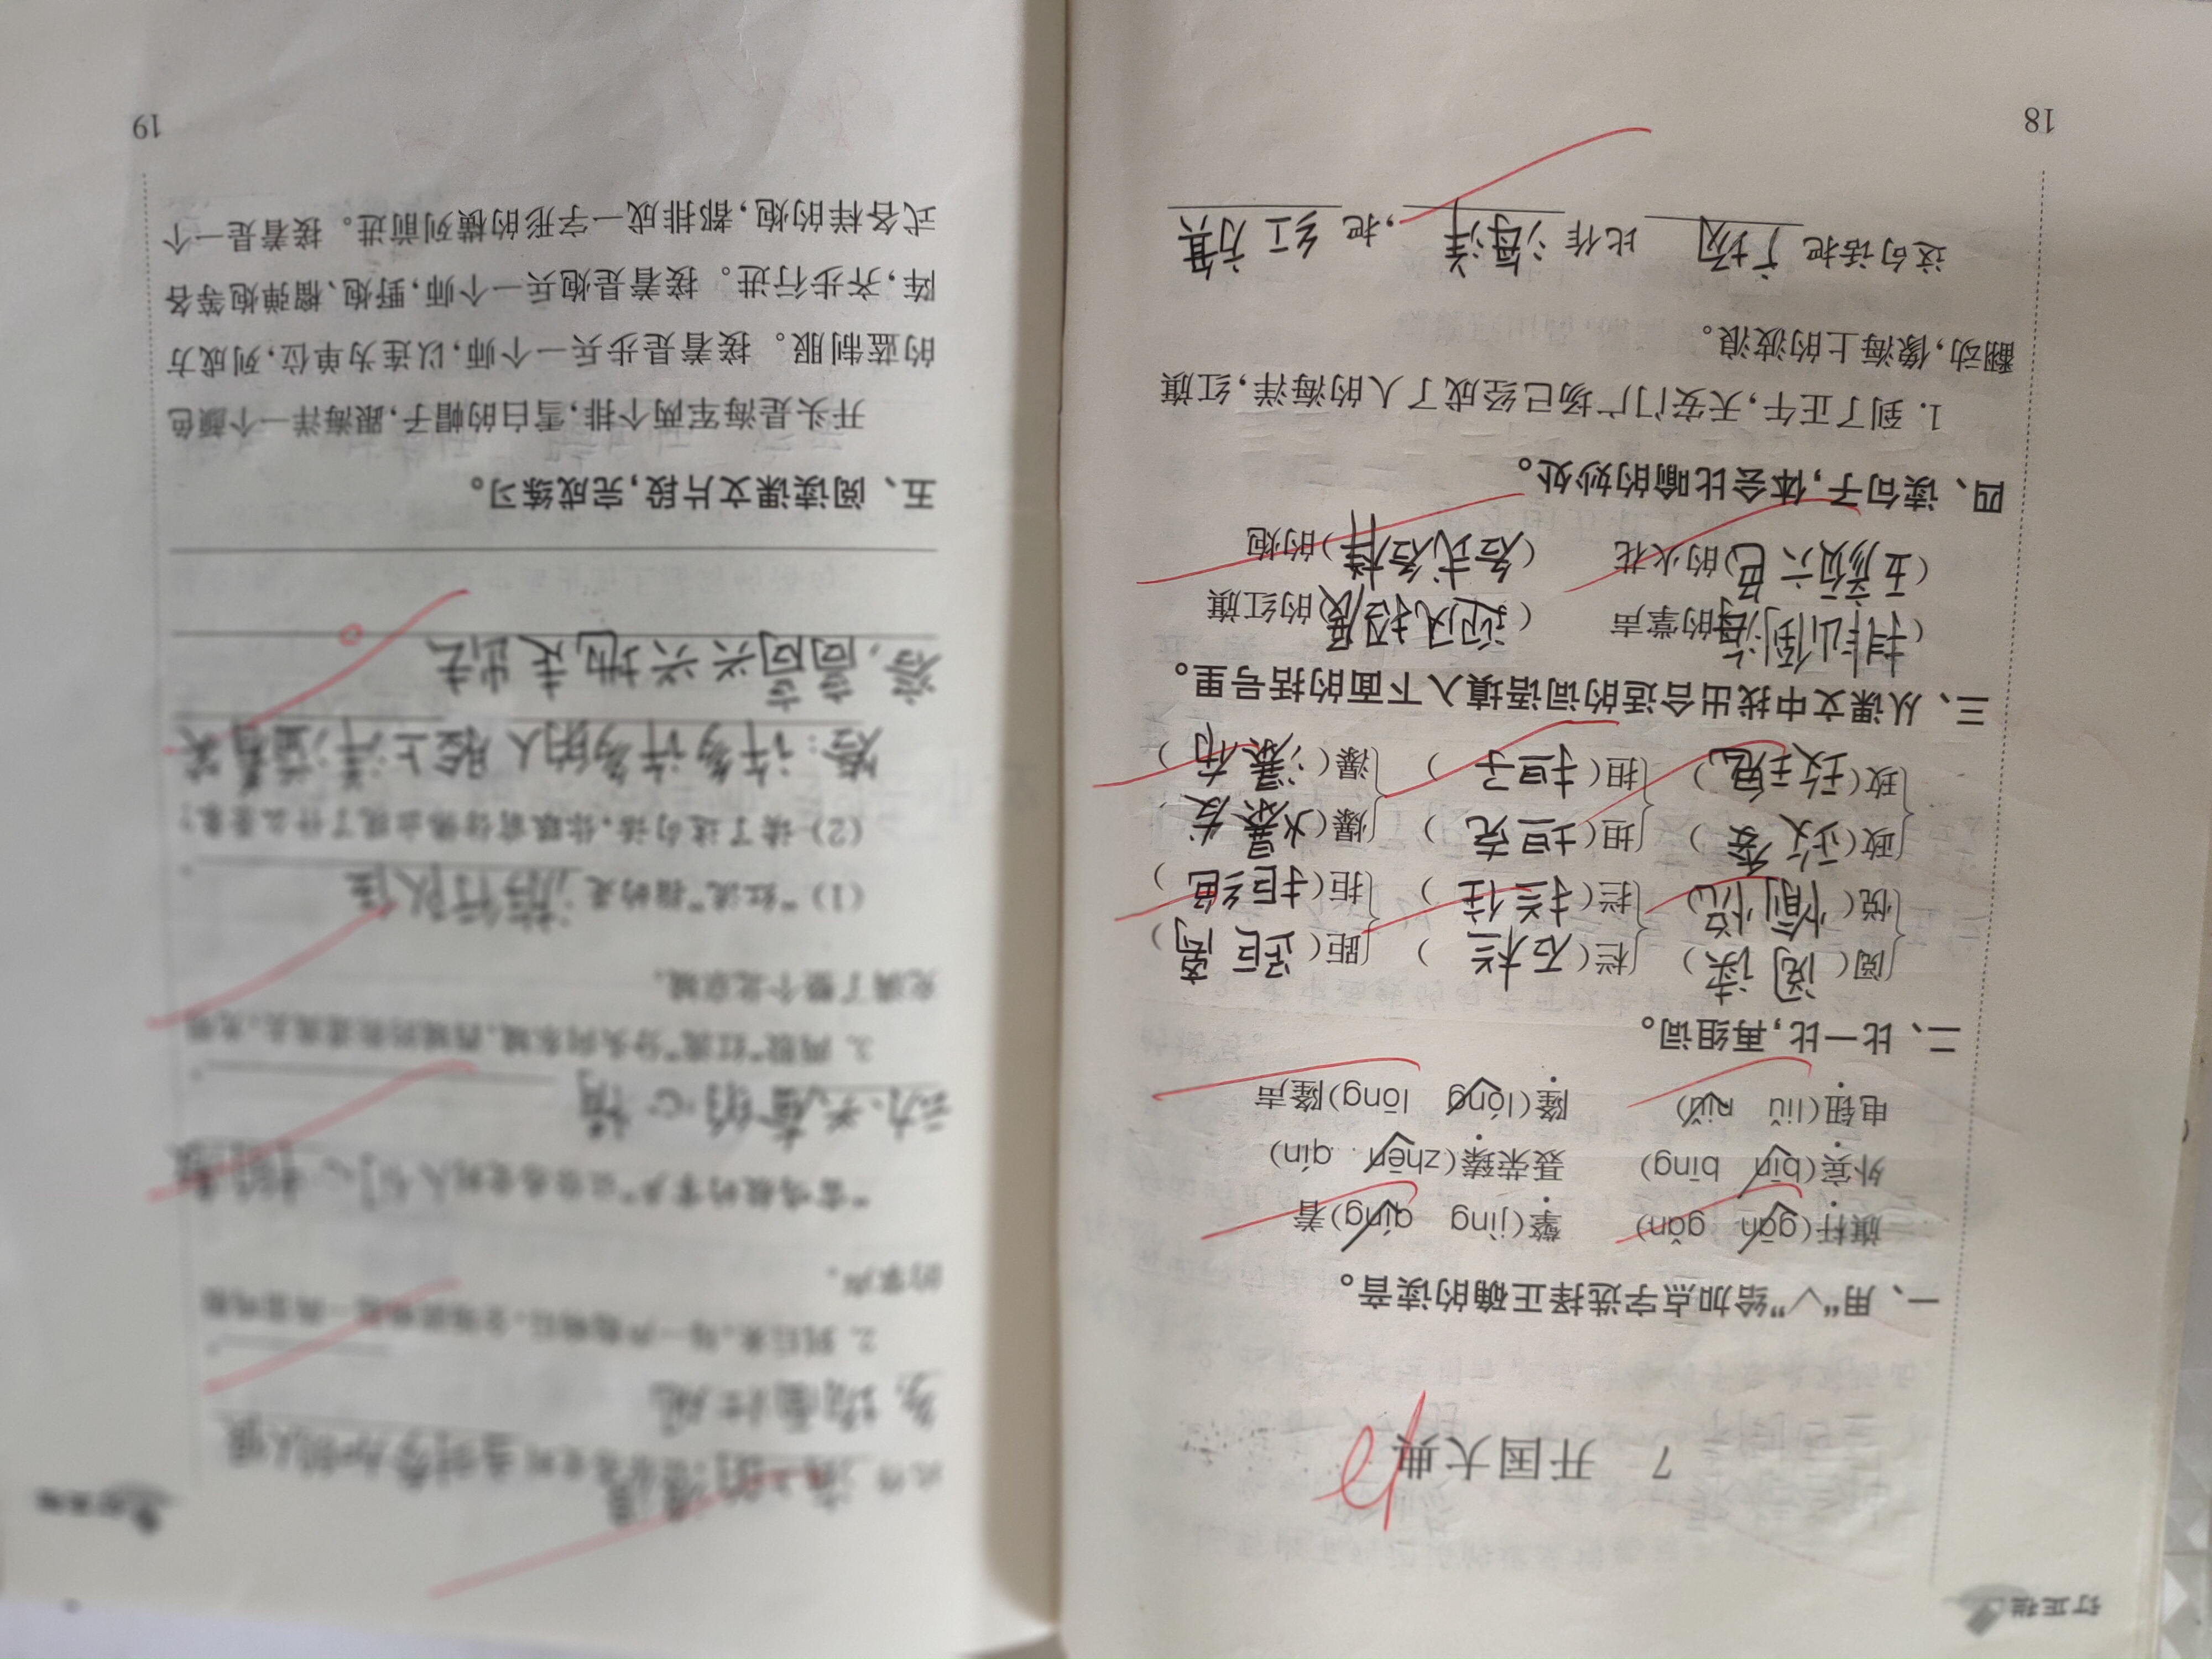 订正栏
7 开国大典
一、用“√”给加点字选择正确的读音。
旗杆(gān gǎn) 擎(jìng qíng)着
外宾(bīn bīng) 聂荣臻(zhēn qín)
电钮(liǔ niǔ) 隆(lóng lōng)隆声
二、比一比,再组词。
阅(阅读) 栏(石栏) 距(距离)
悦(愉悦) 拦(拦住) 拒(拒绝)
政(政委) 坦(坦克) 爆(爆发)
玫(玫瑰) 担(担子) 瀑(瀑布)
三、从课文中找出合适的词语填入下面的括号里。
(排山倒海)的掌声 (迎风招展)的红旗
(五颜六色)的火花 (各式各样)的炮
四、读句子,体会比喻的妙处。
1. 到了正午,天安门广场已经成了人的海洋,红旗
翻动,像海上的波浪。
这句话把 广场 比作 海洋 ,把 红旗
18
的掌声。
3. 两股“红流”分头向东城、西城的街道流去,光明
充满了整个北京城。
(1)“红流”指的是 游行队伍 。
(2)读了这句话,你眼前仿佛出现了什么景象?
答:许多许多的人脸上洋溢着笑
容,高高兴兴地走出去。
五、阅读课文片段,完成练习。
开头是海军两个排,雪白的帽子,跟海洋一个颜色
的蓝制服。接着是步兵一个师,以连为单位,列成方
阵,齐步行进。接着是炮兵一个师,野炮、榴弹炮等各
式各样的炮,都排成一字形的横列前进。接着是一个
19